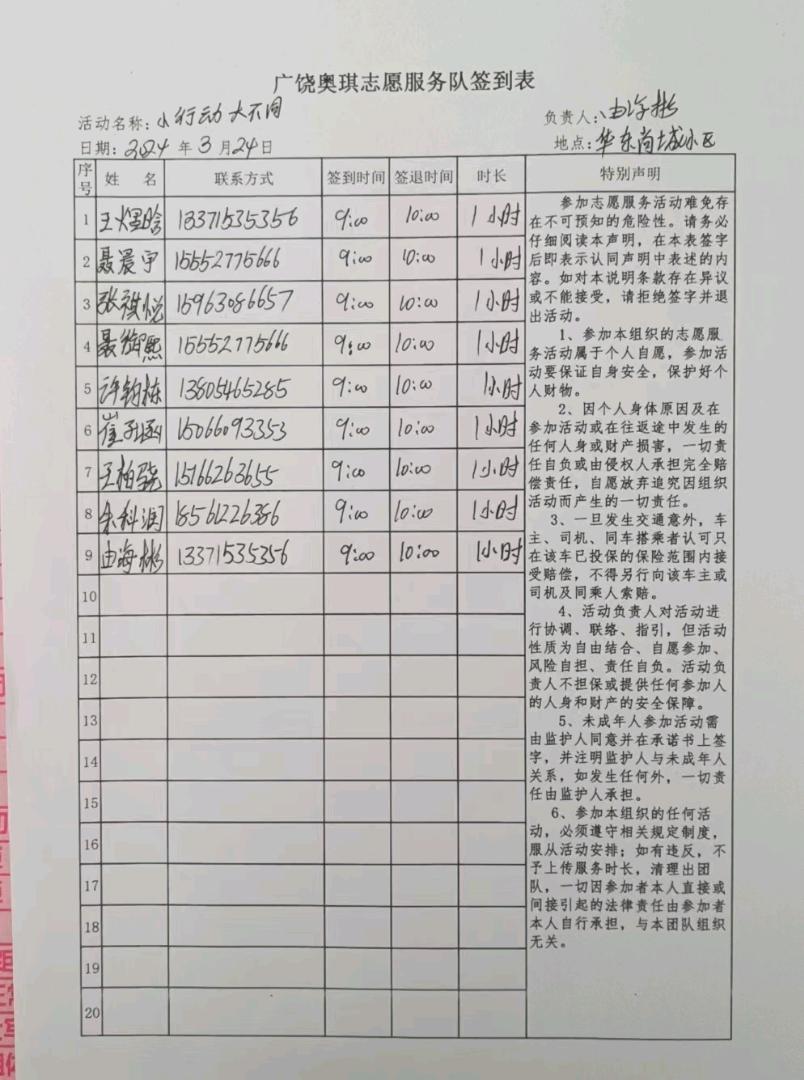 广饶奥琪志愿服务队签到表
活动名称：小行动 大不同
负责人：由海彬
日期：2024 年 3 月 24 日
地点：华东尚城小区
序号 姓 名 联系方式 签到时间 签退时间 时长 特别声明
1 王煜晗 13371535356 9:00 10:00 1小时
2 聂晨宇 15552775666 9:00 10:00 1小时
3 张祺悦 15963086657 9:00 10:00 1小时
4 聂熙 15552775666 9:00 10:00 1小时
5 许钧栋 13805465285 9:00 10:00 1小时
6 崔涵 15066093353 9:00 10:00 1小时
7 王柏骁 15166263655 9:00 10:00 1小时
8 科润 18561226386 9:00 10:00 1小时
9 由海彬 13371535356 9:00 10:00 1小时
10
11
12
13
14
15
16
17
18
19
20
参加志愿服务活动难免存
在不可预知的危险性。请务必
仔细阅读本声明，在本表签字
后即表示认同声明中表述的内
容。如对本说明条款存在异议
或不能接受，请拒绝签字并退
出活动。
1、参加本组织的志愿服
务活动属于个人自愿，参加活
动要保证自身安全，保护好个
人财物。
2、因个人身体原因及在
参加活动或在往返途中发生的
任何人身或财产损害，一切责
任自负或由侵权人承担完全赔
偿责任，自愿放弃追究因组织
活动而产生的一切责任。
3、一旦发生交通意外，车
主、司机、同车搭乘者认可只
在该车已投保的保险范围内接
受赔偿，不得另行向该车主或
司机及同乘人索赔。
4、活动负责人对活动进
行协调、联络、指引，但活动
性质为自由结合、自愿参加、
风险自担、责任自负。活动负
责人不担保或提供任何参加人
的人身和财产的安全保障。
5、未成年人参加活动需
由监护人同意并在承诺书上签
字，并注明监护人与未成年人
关系，如发生任何外，一切责
任由监护人承担。
6、参加本组织的任何活
动，必须遵守相关规定制度，
服从活动安排；如有违反，不
予上传服务时长，清理出团
队，一切因参加者本人直接或
间接引起的法律责任由参加者
本人自行承担，与本团队组织
无关。